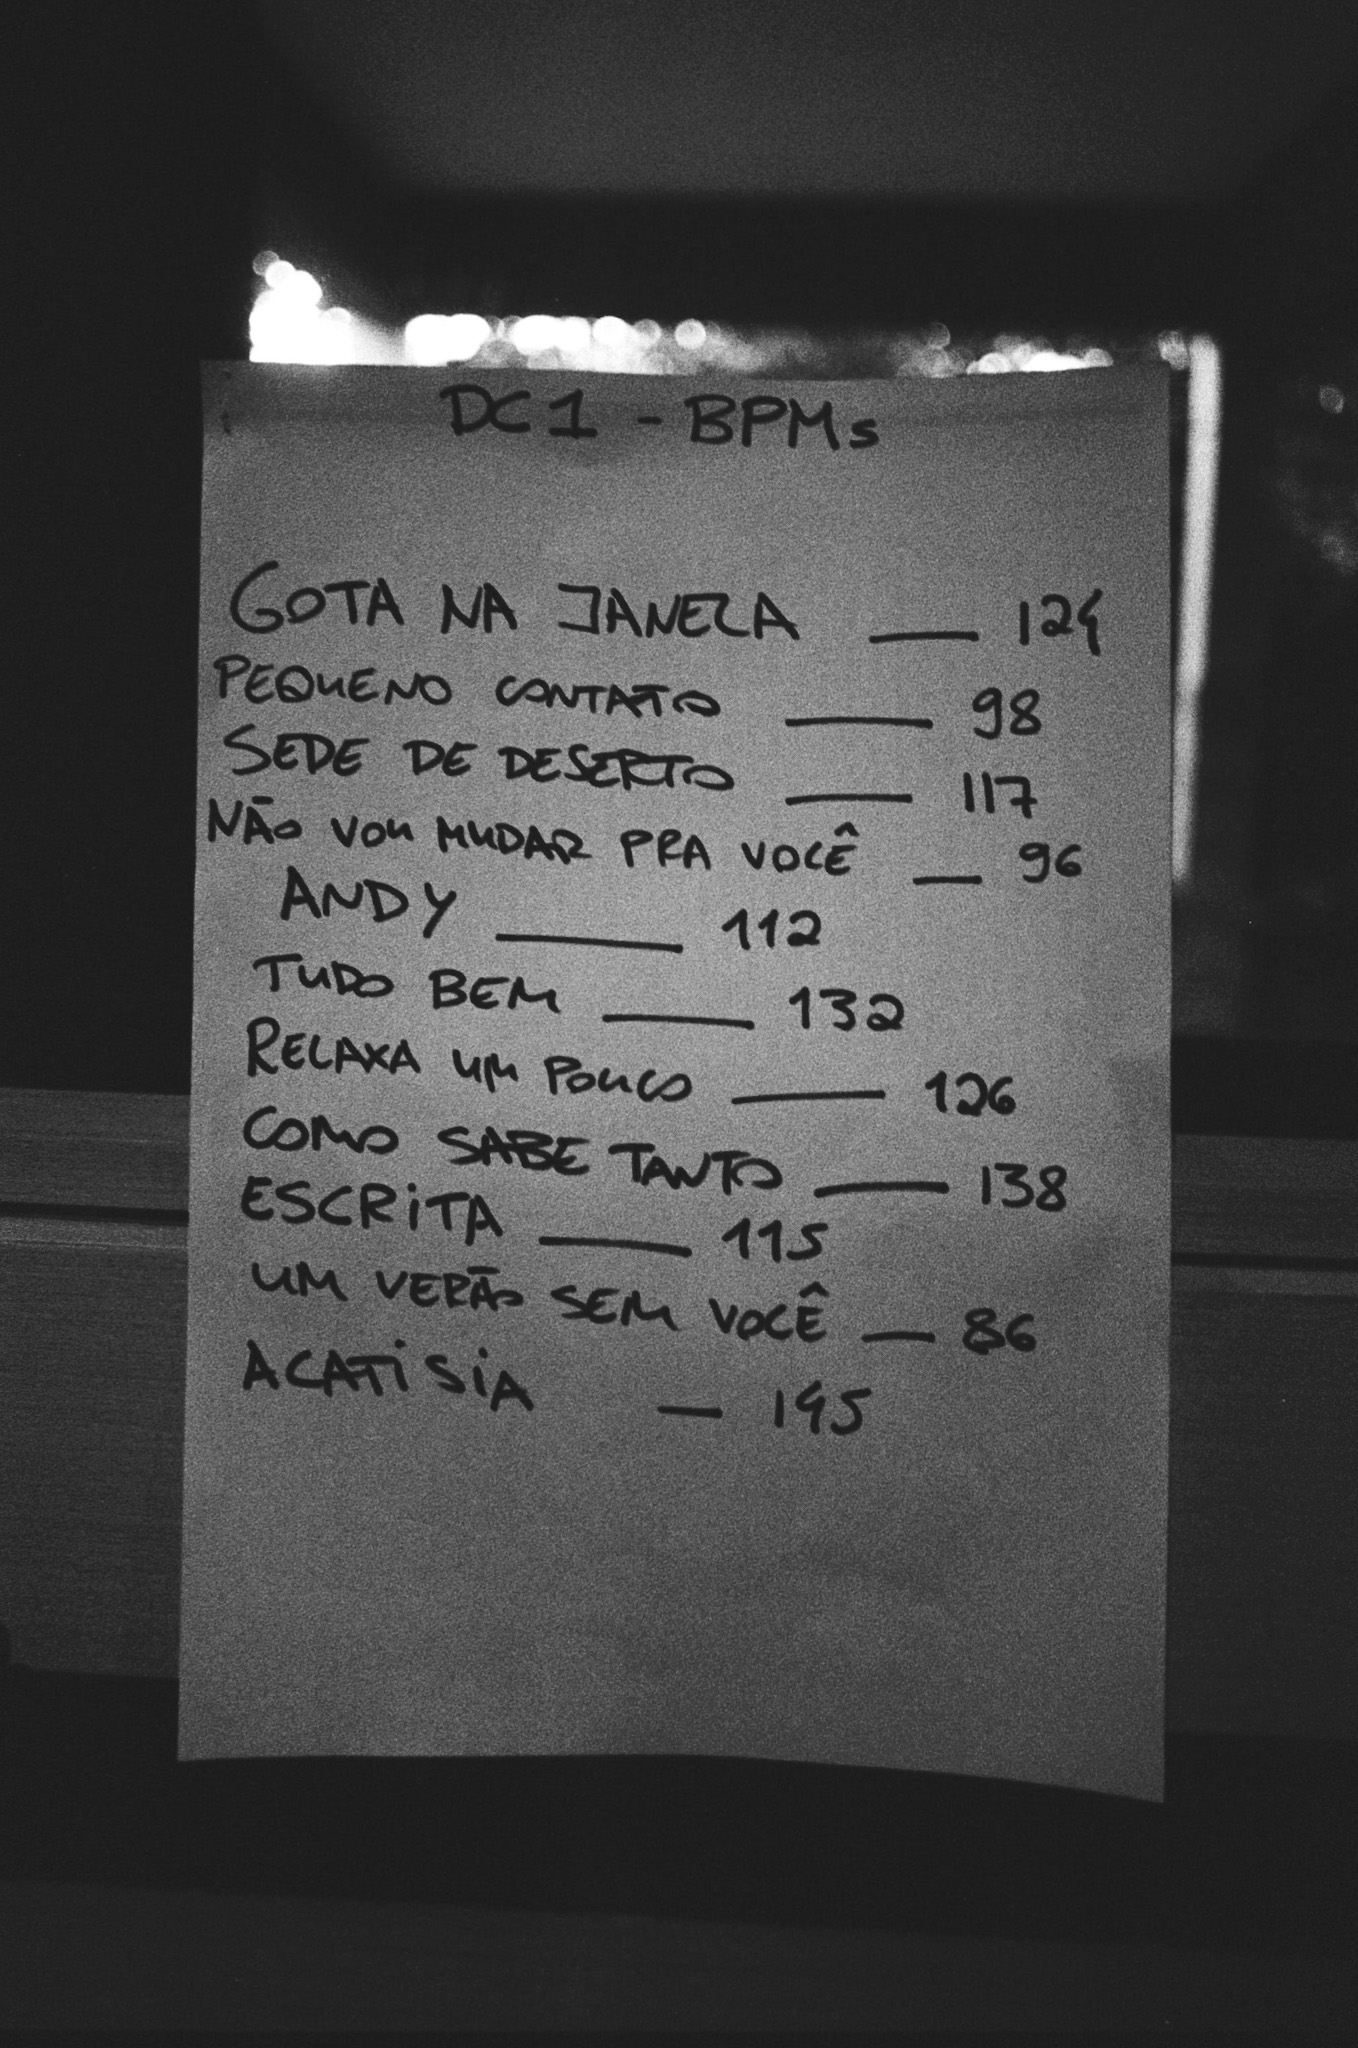 DC1 - BPMs
GOTA NA JANELA — 124
PEQUENO CONTATO — 98
SEDE DE DESERTO — 117
NÃO VOU MUDAR PRA VOCÊ — 96
ANDY — 112
TUDO BEM — 132
RELAXA UM POUCO — 126
COMO SABE TANTO — 138
ESCRiTA — 115
UM VERÃO SEM VOCÊ — 86
ACATiSiA — 145